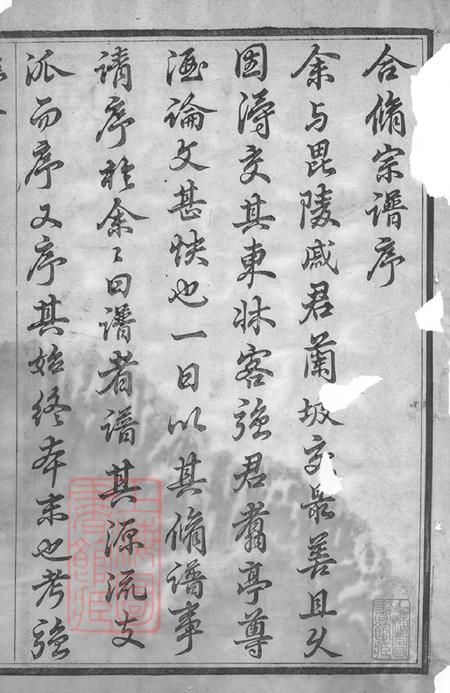 合脩宗譜序
余与毘陵戚君蘭坡交最善且久
因得交其東牀客強君翥亭尊
酒論文甚快也一日以其脩譜事
請序於余〻曰譜者譜其源流支
派而序又序其始終本末也考強
上海圖書館藏
上海圖書館藏